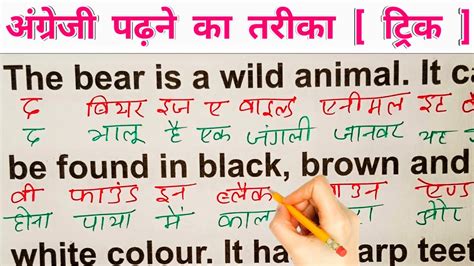 अंग्रेजी पढ़ने का तरीका [ ट्रिक ]
The bear is a wild animal. It ca
द बियर इज ए वाइल्ड एनीमल इट कै
द भालू है एक जंगली जानवर यह
be found in black, brown and
बी फाउंड इन ब्लैक एण्ड
होना पाया में और
white colour. It ha arp teet